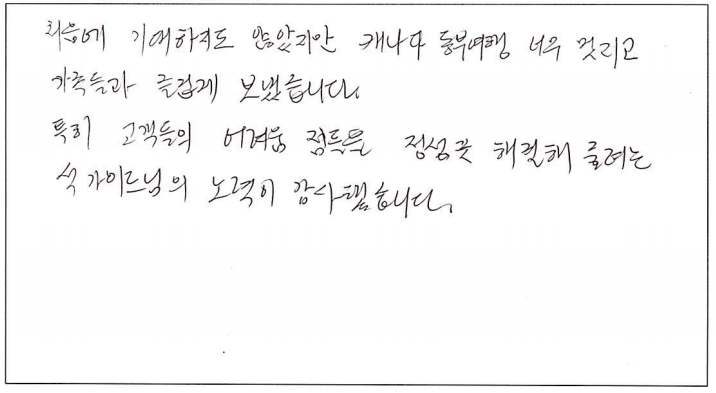 처음에 기여하지도 않았지만 캐나다 동부여행 너무 멋지고
가족들과 즐겁게 보냈습니다.
특히 고객들의 어려움 점들을 정성껏 해결해 줄려는
석 가이드님의 노력이 감사했습니다.